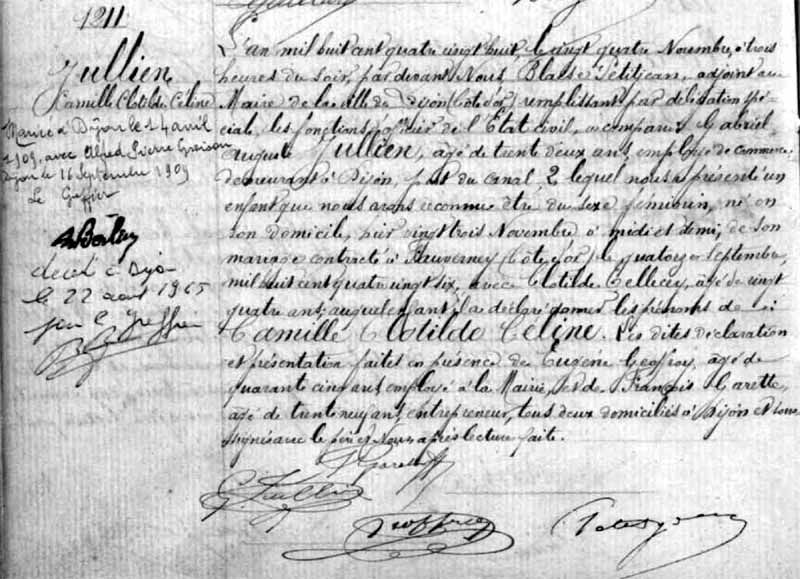 1211
Jullien
Camille Clotilde Céline
Marié à Dijon le 14 avril
1909, avec Alfred Pierre
Dijon le 16 Septembre 1909
Le Greffier
décédé à Dijon
le 22 août 1965
pour le Greffier
L'an mil huit cent quatre vingt huit, le vingt quatre Novembre, à trois
heures du soir, par devant Nous Blaise Petitjean, adjoint au
Maire de la ville de Dijon (Côte d'or) remplissant par délégation spé-
ciale les fonctions d'officier de l'Etat civil, a comparu Gabriel
Auguste Jullien, âgé de trente deux ans, employé de commerce
demeurant à Dijon, port du Canal, 2 lequel nous a présenté un
enfant que nous avons reconnu être du sexe féminin, né en
son domicile, hier vingt trois Novembre à midi et demi, de son
mariage contracté à Fauverney (Côte d'or) le quatorze Septembre
mil huit cent quatre vingt six, avec Clotilde Cellier, âgée de vingt
quatre ans, auquel enfant il a déclaré donner les prénoms de
Camille Clotilde Céline. Les dites déclaration
et présentation faites en présence de Eugène Geoffroy, âgé de
quarante cinq ans, employé à la Mairie, et de François Garette,
âgé de trente neuf ans, entrepreneur, tous deux domiciliés à Dijon et sous-
signés avec le père et Nous après lecture faite.
F Garette
G. Jullien
Geoffroy
Petitjean